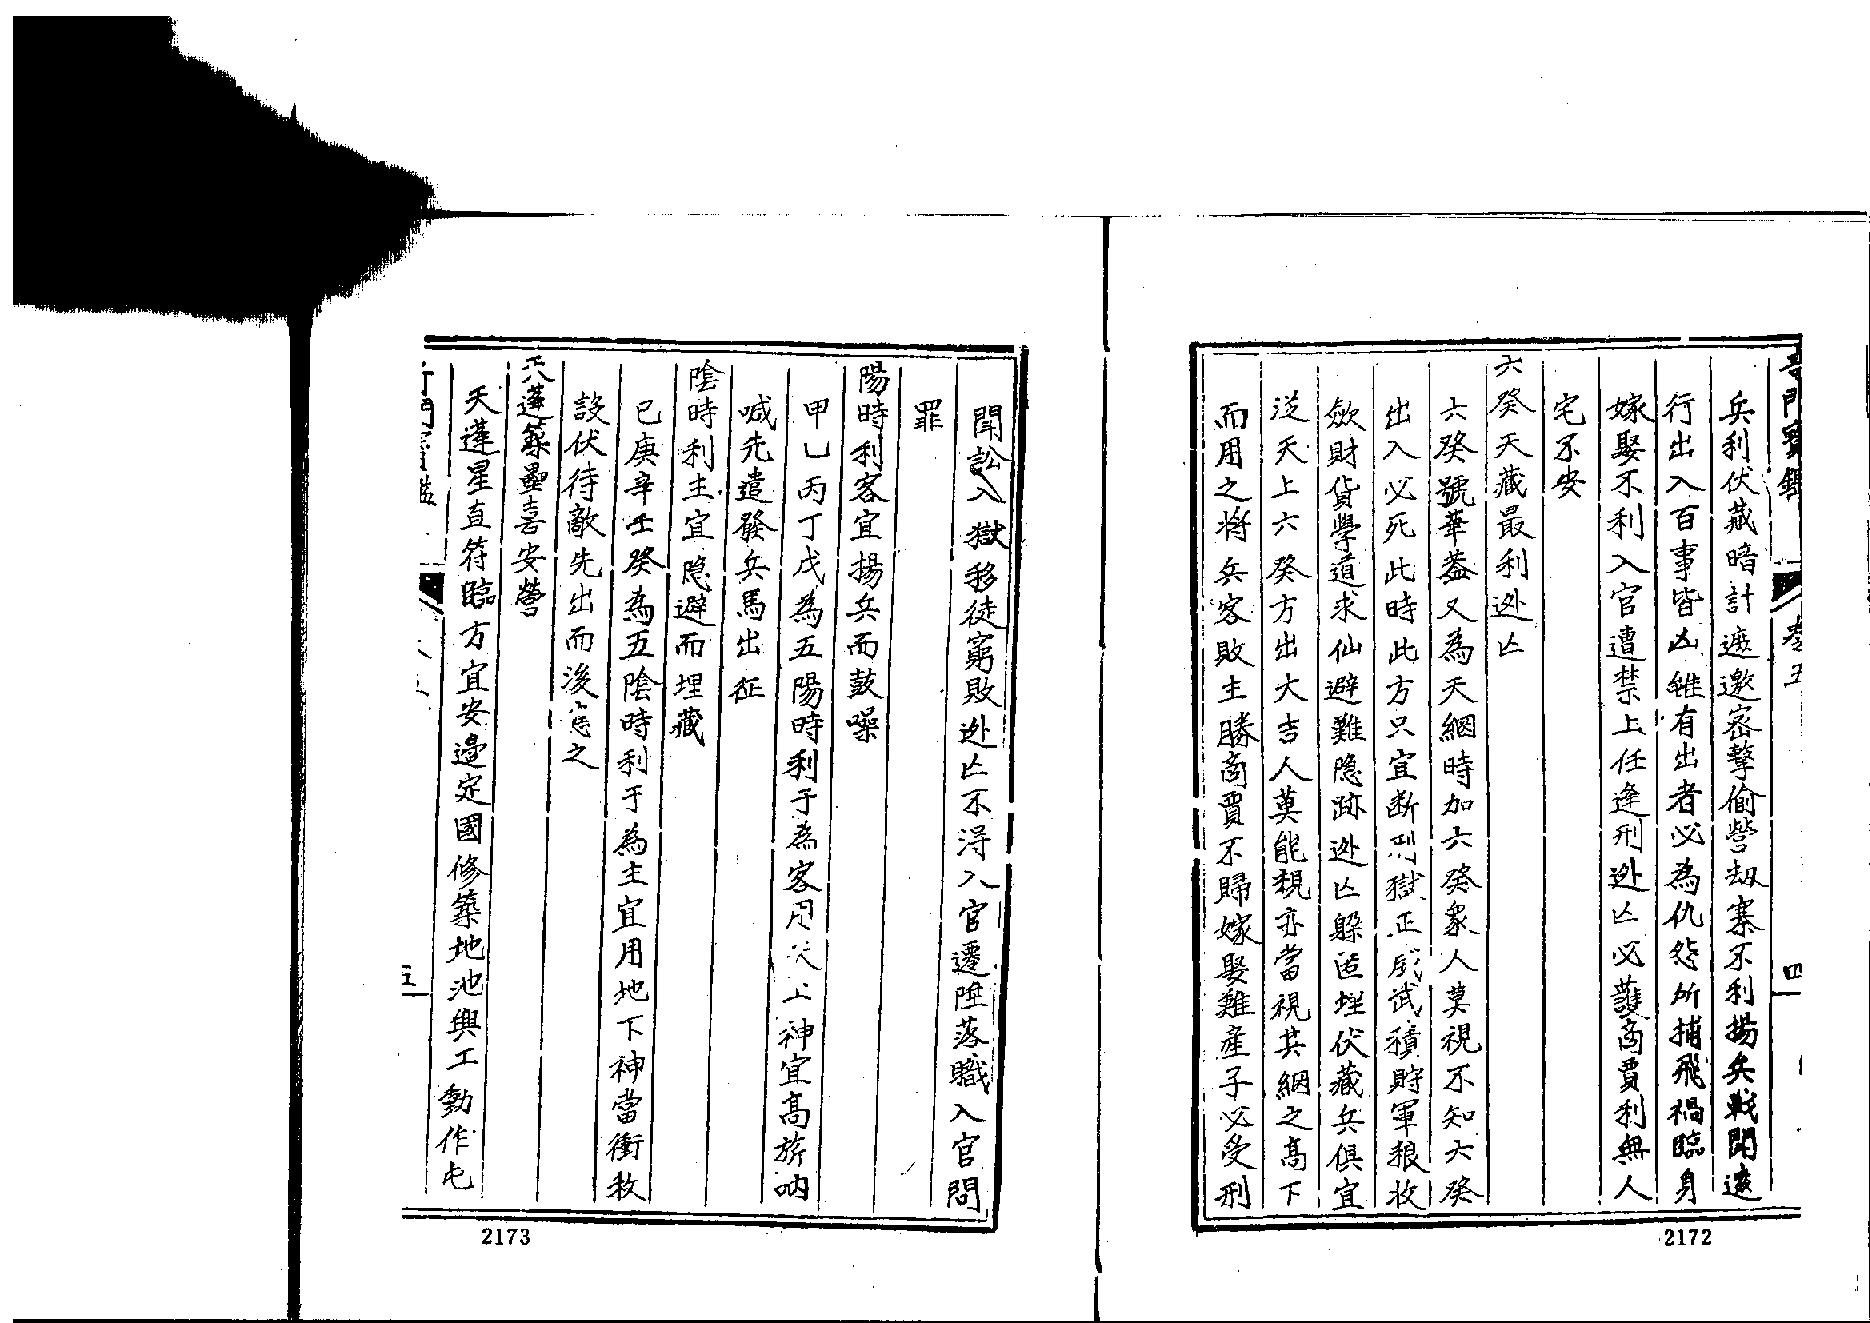 奇門寶鑑 卷五 四
兵利伏藏暗計遮邀密擊偷營刼寨不利揚兵戰鬪遠
行出入百事皆凶雖有出者必為仇怨所捕飛禍臨身
嫁娶不利入官遭禁上任逢刑逃亡必護商賈利無人
宅不安
六癸天藏最利逃亡
六癸號華葢又為天網時加六癸衆人莫視不知六癸
出入必死此時此方只宜断刑獄正威武積貯軍粮收
歛財貨學道求仙避難隐跡逃亡躱匿埋伏藏兵俱宜
泛天上六癸方出大吉人莫能覩亦當視其網之髙下
而用之將兵客敗主勝商賈不歸嫁娶難產子必受刑
2172
聞訟入獄移徒窮敗逃亡不淂入官遷陞落職入官問
罪
陽時利客宜揚兵而鼓噪
甲乙丙丁戊為五陽時利于為客用天上神宜髙旂吶
喊先遣發兵馬出征
陰時利主宜隐避而埋藏
已庚辛壬癸為五陰時利于為主宜用地下神當衝枚
設伏待敵先出而後應之
天蓬築壘喜安營
天蓬星直符臨方宜安邊定國修築地池興工動作屯
五
2173